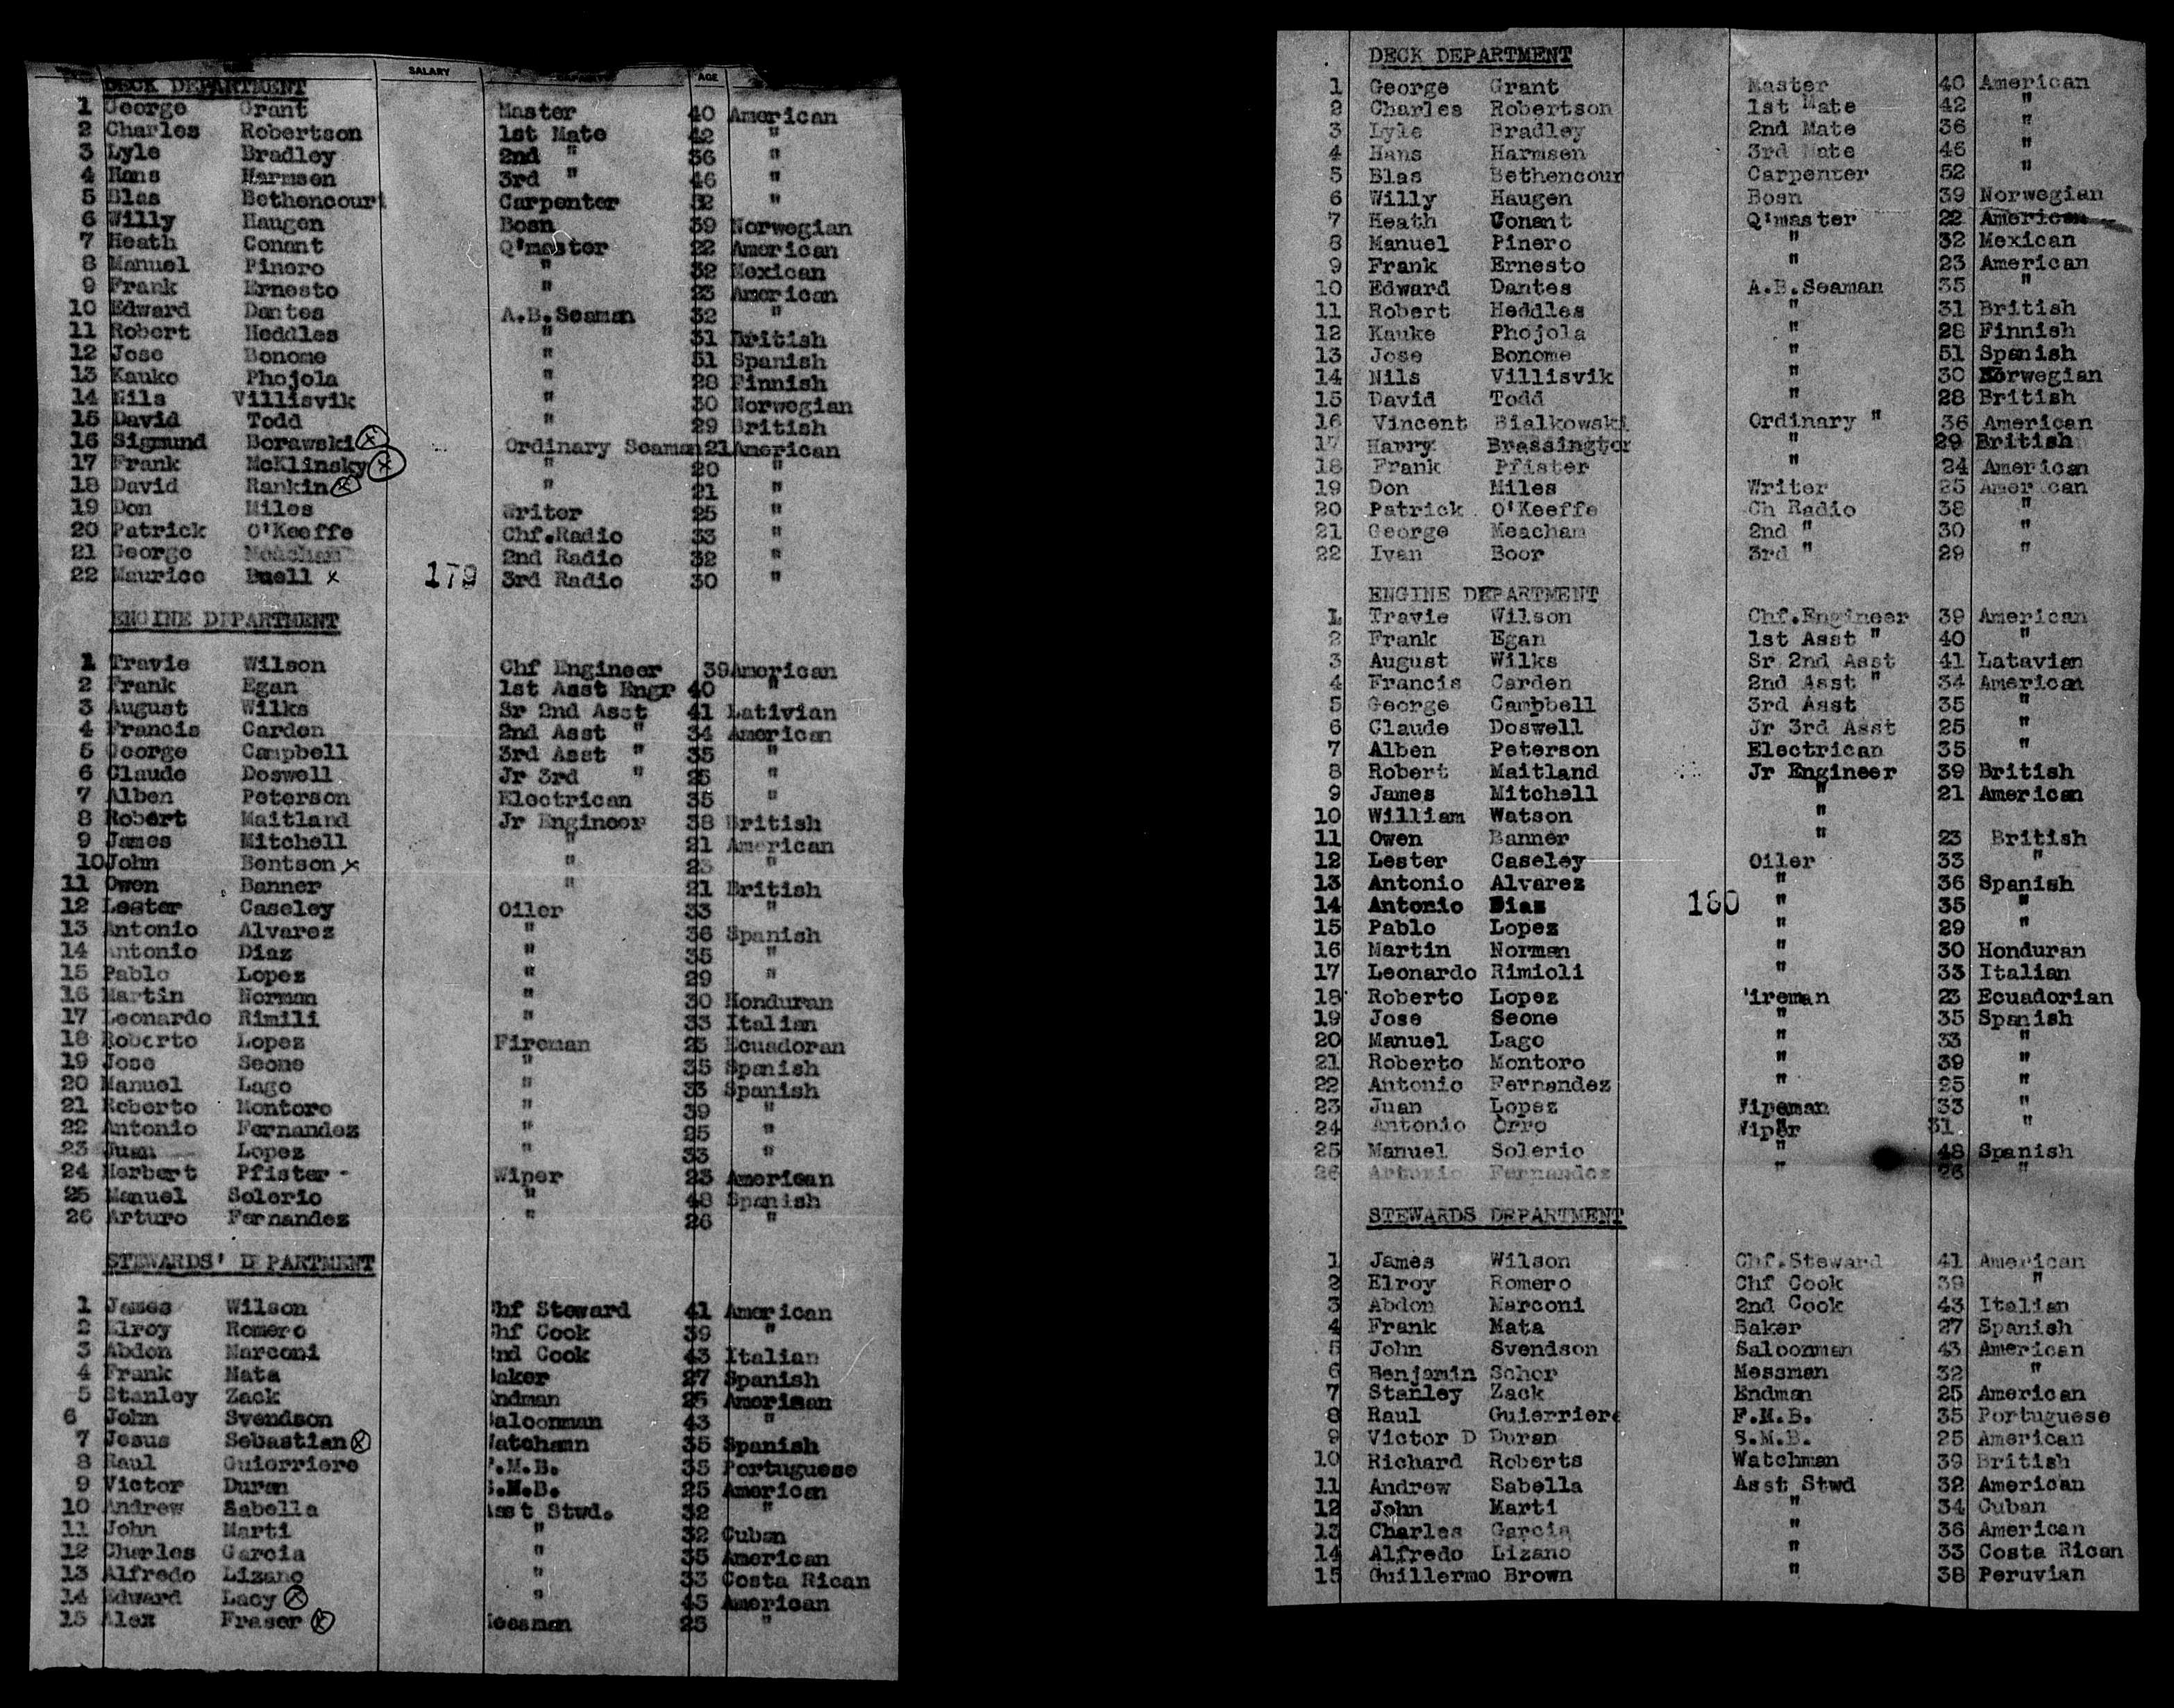 SALARY AGE
DECK DEPARTMENT
1 George Grant Master 40 American
2 Charles Robertson 1st Mate 42 "
3 Lyle Bradley 2nd " 36 "
4 Hans Harmsen 3rd " 46 "
5 Blas Bethencourt Carpenter 52 "
6 Willy Haugen Bosn 39 Norwegian
7 Heath Conant Q'master 22 American
8 Manuel Pinero " 32 Mexican
9 Frank Ernesto " 23 American
10 Edward Dantes A.B.Seaman 32 "
11 Robert Heddles " 31 British
12 Jose Bonome " 51 Spanish
13 Kauko Phojola " 28 Finnish
14 Nils Villisvik " 30 Norwegian
15 David Todd " 29 British
16 Sigmund Borawski x Ordinary Seaman 21 American
17 Frank McKlinsky x " 20 "
18 David Rankin x " 21 "
19 Don Miles Writer 25 "
20 Patrick O'Keeffe Chf.Radio 33 "
21 George Meacham 2nd Radio 32 "
22 Maurice Buell x 179 3rd Radio 30 "
ENGINE DEPARTMENT
1 Travie Wilson Chf Engineer 39 American
2 Frank Egan 1st Asst Engr 40 "
3 August Wilks Sr 2nd Asst 41 Lativian
4 Francis Carden 2nd Asst " 34 American
5 George Campbell 3rd Asst " 35 "
6 Claude Doswell Jr 3rd " 25 "
7 Alben Peterson Electrican 35 "
8 Robert Maitland Jr Engineer 38 British
9 James Mitchell " 21 American
10 John Bentson x " 23 "
11 Owen Banner " 21 British
12 Lester Caseley Oiler 33 "
13 Antonio Alvarez " 36 Spanish
14 Antonio Diaz " 35 "
15 Pablo Lopez " 29 "
16 Martin Norman " 30 Honduran
17 Leonardo Rimili " 33 Italian
18 Roberto Lopez Fireman 23 Ecuadoran
19 Jose Seone " 35 Spanish
20 Manuel Lago " 33 Spanish
21 Roberto Montoro " 39 "
22 Antonio Fernandez " 25 "
23 Juan Lopez " 33 "
24 Herbert Pfister - Wiper 23 American
25 Manuel Solerio " 48 Spanish
26 Arturo Fernandez " 26 "
STEWARDS' DEPARTMENT
1 James Wilson Chf Steward 41 American
2 Elroy Romero Chf Cook 39 "
3 Abdon Marconi 2nd Cook 43 Italian
4 Frank Mata Baker 27 Spanish
5 Stanley Zack Endman 25 American
6 John Svendson Saloonman 43 "
7 Jesus Sebastian x Watchamn 35 Spanish
8 Raul Guierriere F.M.B. 35 Portuguese
9 Victor Duran S.M.B. 25 American
10 Andrew Sabella Asst Stwd. 32 "
11 John Marti " 32 Cuban
12 Charles Garcia " 35 American
13 Alfredo Lizano " 33 Costa Rican
14 Edward Lacy x " 45 American
15 Alex Fraser x Messman 23 "
DECK DEPARTMENT
1 George Grant Master 40 American
2 Charles Robertson 1st Mate 42 "
3 Lyle Bradley 2nd Mate 36 "
4 Hans Harmsen 3rd Mate 46 "
5 Blas Bethencour Carpenter 52 "
6 Willy Haugen Bosn 39 Norwegian
7 Heath Conant Q'master 22 American
8 Manuel Pinero " 32 Mexican
9 Frank Ernesto " 23 American
10 Edward Dantes A.B.Seaman 35 "
11 Robert Heddles " 31 British
12 Kauke Phojola " 28 Finnish
13 Jose Bonome " 51 Spanish
14 Nils Villisvik " 30 Norwegian
15 David Todd " 28 British
16 Vincent Bialkowski Ordinary " 36 American
17 Harry Brassington " 29 British
18 Frank Pfister " 24 American
19 Don Miles Writer 25 American
20 Patrick O'Keeffe Ch Radio 38 "
21 George Meacham 2nd " 30 "
22 Ivan Boor 3rd " 29 "
ENGINE DEPARTMENT
1 Travie Wilson Chf.Engineer 39 American
2 Frank Egan 1st Asst " 40 "
3 August Wilks Sr 2nd Asst 41 Latavian
4 Francis Carden 2nd Asst " 34 American
5 George Campbell 3rd Asst 35 "
6 Claude Doswell Jr 3rd Asst 25 "
7 Alben Peterson Electrican 35 "
8 Robert Maitland Jr Engineer 39 British
9 James Mitchell " 21 American
10 William Watson "
11 Owen Banner " 23 British
12 Lester Caseley Oiler 33 "
13 Antonio Alvarez " 36 Spanish
14 Antonio Diaz 180 " 35 "
15 Pablo Lopez " 29 "
16 Martin Norman " 30 Honduran
17 Leonardo Rimioli " 33 Italian
18 Roberto Lopez 'ireman 23 Ecuadorian
19 Jose Seone " 35 Spanish
20 Manuel Lago " 33 "
21 Roberto Montoro " 39 "
22 Antonio Fernandez " 25 "
23 Juan Lopez 33 "
24 Antonio Orro Wiper 31 "
25 Manuel Solerio " 48 Spanish
26 Fernandez " 26 "
STEWARDS DEPARTMENT
1 James Wilson Chf.Steward 41 American
2 Elroy Romero Chf Cook 39 "
3 Abdon Marconi 2nd Cook 43 Italian
4 Frank Mata Baker 27 Spanish
5 John Svendson Saloonman 43 American
6 Benjamin Schor Messman 32 "
7 Stanley Zack Endman 25 American
8 Raul Guierriere F.M.B. 35 Portuguese
9 Victor D Duran S.M.B. 25 American
10 Richard Roberts Watchman 39 British
11 Andrew Sabella Asst Stwd 32 American
12 John Marti " 34 Cuban
13 Charles Garcia " 36 American
14 Alfredo Lizano " 33 Costa Rican
15 Guillermo Brown " 38 Peruvian